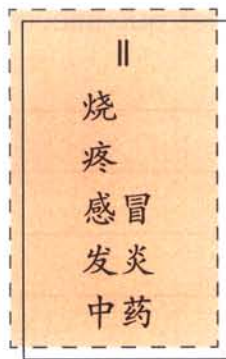 Ⅱ
烧
疼
感冒
发炎
中药